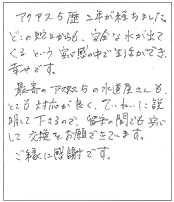 アクアス5歴2年が経ちました。
どこの蛇口からも、安全な水が出て
くるという安心感の中で生活ができ、
幸せです。
最寄のアクアス5の水道屋さんも、
とても対応が良く、ていねいに説
明して下さるので、留守の間でも安心
して交換をお願いできています。
ご縁に感謝です。